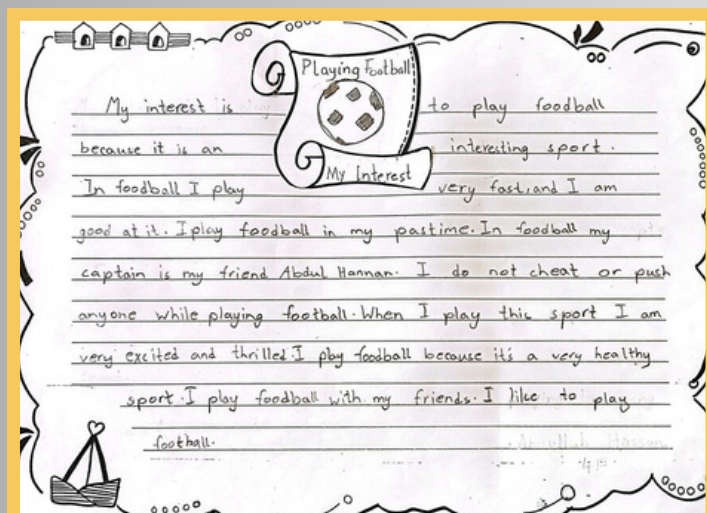 Playing Football
My Interest
My interest is to play foodball
because it is an interesting sport.
In foodball I play very fast, and I am
good at it. I play foodball in my pastime. In foodball my
captain is my friend Abdul Hannan. I do not cheat or push
anyone while playing football. When I play this sport I am
very excited and thrilled. I play foodball because it's a very healthy
sport. I play foodball with my friends. I like to play
football.